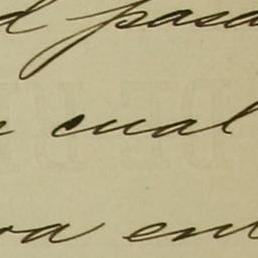 d pasa
cual
va ent